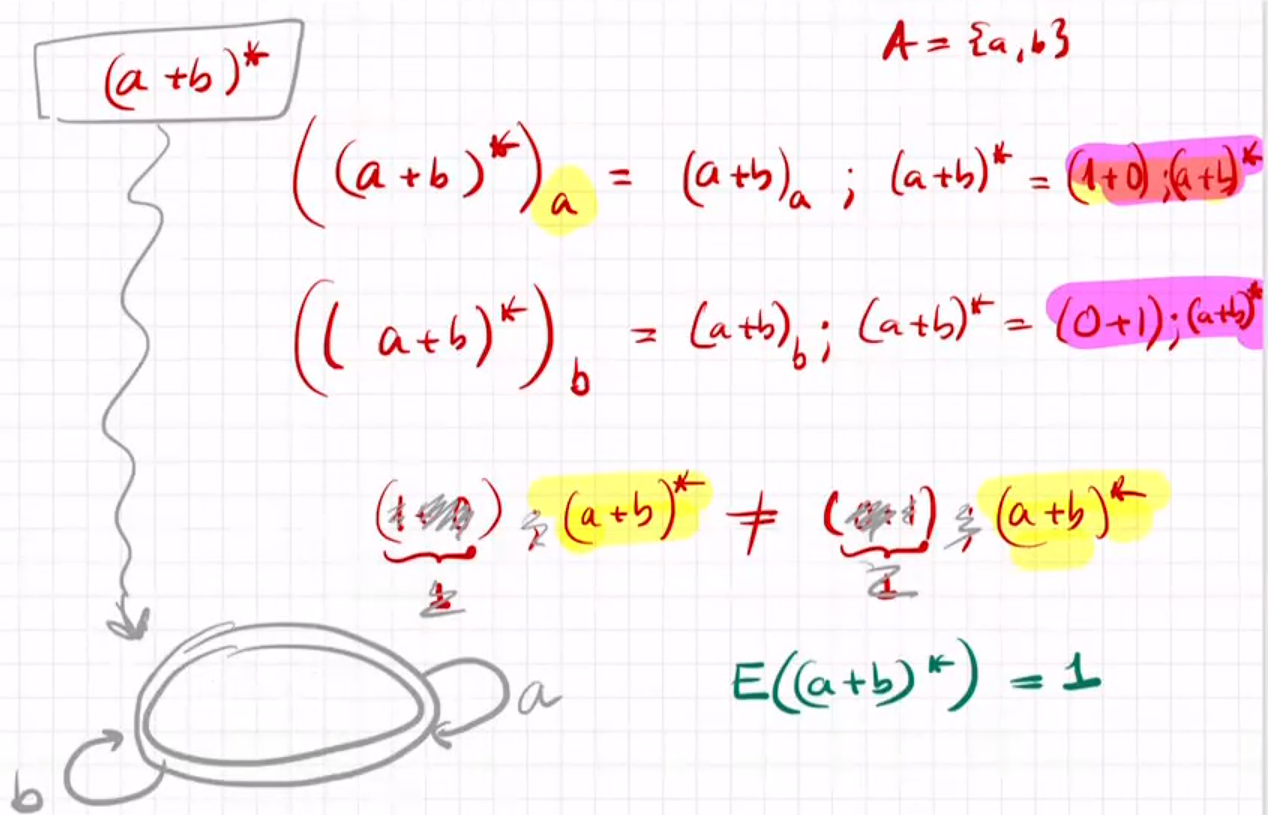 A = {a,b}
(a+b)*
((a+b)*)a = (a+b)a ; (a+b)* = (1+0);(a+b)*
((a+b)*)b = (a+b)b ; (a+b)* = (0+1);(a+b)*
( ) ; (a+b)* ≠ ( ) ; (a+b)*
1 1
E((a+b)*) = 1
a
b